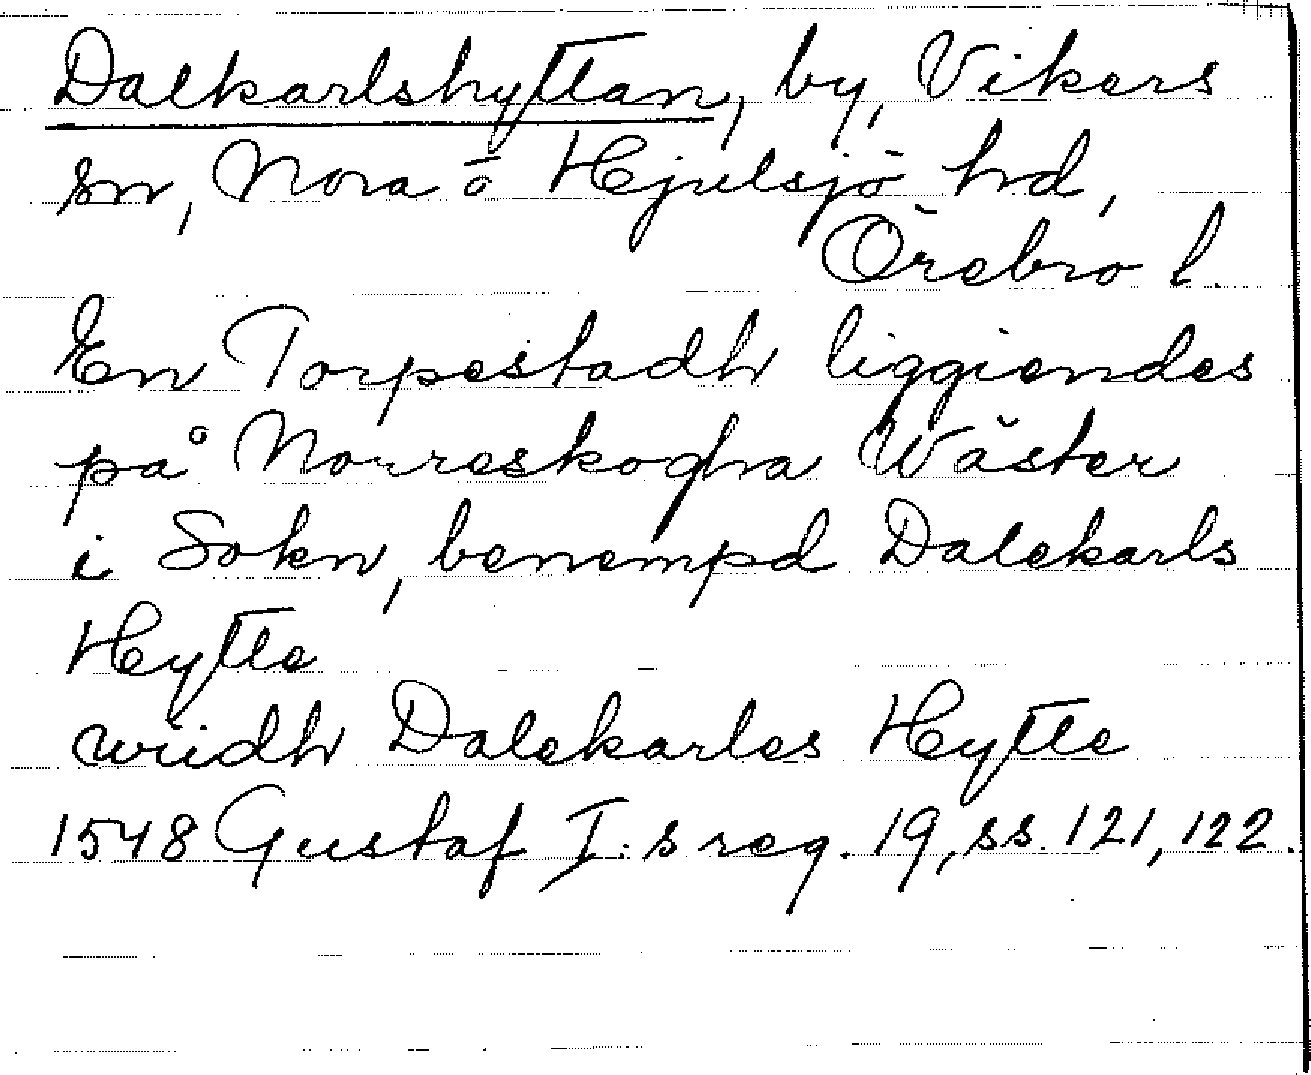 Dalkarlshyttan, by, Vikers
sn, Nora o Hjulsjö hd,
Örebro l.
En Torpestadh liggiendes
på Norreskogha Wäster
i Sokn, benempd Dalekarls
Hytte
widh Dalekarles Hytte
1548 Gustaf I:s reg. 19, ss. 121, 122.